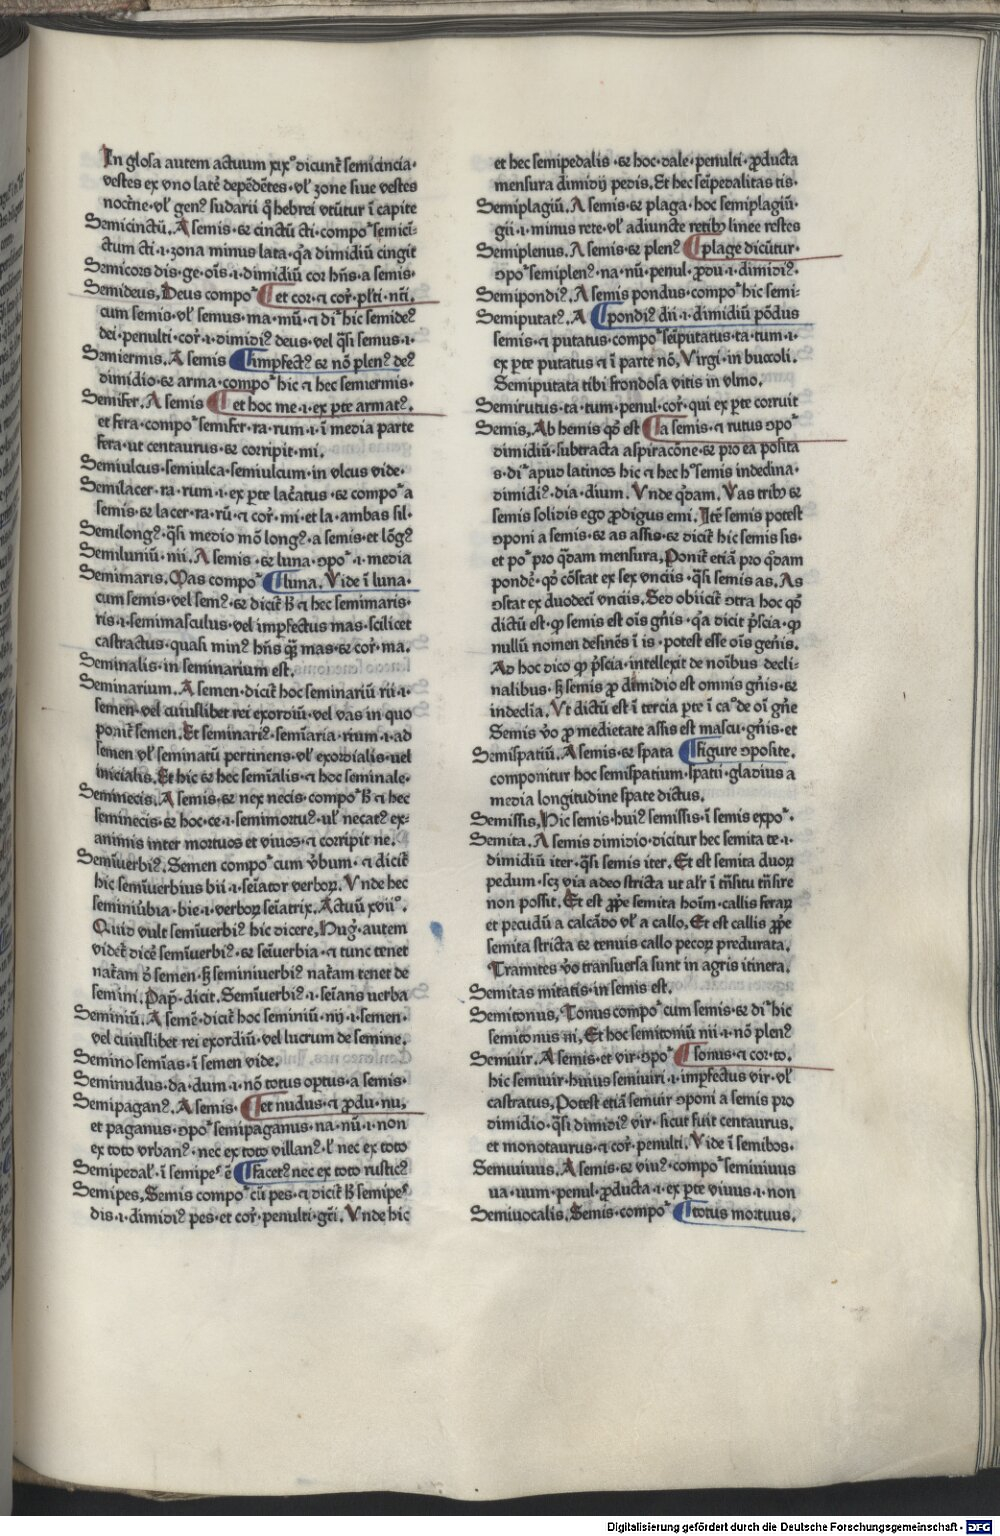 In glosa autem actuum xixº dicunt᷑ semicincia·
vestes ex vno latẽ depẽdẽtes·vl᷑ zone siue vestes
noctne·vl᷑ genꝰ sudarii q̃ hebrei vtũtur ĩ capite
Semicinctũ. A semis·⁊ cinctũ cti·compoᷣ semicĩ-
ctum cti·ı·zona minus lata·q̃a dimidiũ cingit
Semicors dis·ge·oĩs·ı·dimidiũ cor hñs·a semis·
Semideus, Deus compoᷣ ¶ et cor·⁊ cor᷑·pl᷑ti·nt᷑i.
cum semis·vl᷑ semus·ma·mũ·⁊ diᷣ hic semideꝰ
dei·penulti·cor᷑·ı·dimidiꝰ deus·vel q̃si semus·ı·
Semiermis. A semis ¶ impfectꝰ ⁊ nõ plenꝰ deꝰ
dimidio·⁊ arma·compoᷣ hic ⁊ hec semiermis·
Semifer. A semis ¶ et hoc me·ı·ex pte armatꝰ.
et fera·compoᷣ semifer·ra·rum·ı·ĩ media parte
fera·ut centaurus·⁊ corripit·mi.
Semiulcus·semiulca·semiulcum·in vlcus vide·
Semilacer·ra·rum·ı·ex pte lac᷑atus·⁊ compoᷣ a
semis·⁊ lacer·ra·rũ·⁊ cor᷑·mi·et la·ambas sil·
Semilongꝰ·q̃si medio mõ longꝰ·a semis·et lõgꝰ
Semiluniũ·nii. A semis·⁊ luna·ꝯpoᷣ·ı·media
Semimaris. Mas compoᷣ ¶ luna. Vide ĩ luna·
cum semis·vel semꝰ·⁊ dicit᷑ h̃ ⁊ hec semimaris·
ris·ı·semimasculus·vel impfectus mas·scilicet
castractus·quasi minꝰ hñs q̃ȝ mas·⁊ cor᷑·ma.
Seminalis·in seminarium est.
Seminarium. A semen·dicit᷑ hoc seminariũ rii·ı·
semen·vel cuiuslibet rei exordiũ·vel vas in quo
ponit᷑ semen. Et seminariꝰ·semĩaria·rium·ı·ad
semen vl᷑ seminatũ pertinens·vl᷑ exordialis·uel
inicialis. Et hic ⁊ hec semĩalis·⁊ hoc seminale·
Seminecis. A semis·⁊ nex necis·compoᷣ h̃ ⁊ hec
seminecis·⁊ hoc·ce·ı·semimortuꝰ·ul᷑ necatꝰ ex-
animis inter mortuos et viuos·⁊ corripit ne.
Semĩuerbiꝰ. Semen compoᷣ cum v̓bum·⁊ dicit᷑
hic semĩuerbius bii·ı·seĩator verboꝝ. Vnde hec
seminiũbia·bie·ı·verboꝝ seĩatrix. Actuũ xviiº.
Quid vult semĩuerbiꝰ hic dicere, Hug᷑·autem
videt᷑ dicẽ semĩuerbiꝰ·⁊ seĩuerbia·⁊ tunc tenet
nat᷑am ð semen·ꝫ seminiuerbiꝰ nat᷑am tenet de
semini. Pap᷑·dicit. Semĩuerbiꝰ·ı·seĩans uerba
Seminiũ. A semẽ·dicit᷑ hoc seminiũ·nij·ı·semen·
vel cuiuslibet rei exordiũ·vel lucrum de semine.
Semino semĩas·ĩ semen vide.
Seminudus·da·dum·ı·nõ totus optus·a semis·
Semipaganꝰ. A semis· ¶ et nudus·⁊ ꝓdu·nu,
et paganus·ꝯpoᷣ semipaganus·na·nũ·ı·non
ex toto vrbanꝰ·nec ex toto villanꝰ·ł nec ex toto
Semipedal᷑·ĩ semipeˢ ẽ ¶ facetꝰ nec ex toto rusticꝰ
Semipes, Semis compoᷣ cũ pes·⁊ dicit᷑ h̃ semipeˢ
dis·ı·dimidiꝰ pes·et cor᷑·penulti·gt᷑i. Vnde hic
et hec semipedalis·⁊ hoc·dale·penulti·ꝓducta
mensura dimidij pedis. Et hec seĩpedalitas tis·
Semiplagiũ. A semis·⁊ plaga·hoc semiplagiũ·
gii·ı·minus rete·vl᷑ adiuncte retibꝫ linee restes
Semiplenus. A semis·⁊ plenꝰ ¶ plage dicũtur·
ꝯpoᷣ semiplenꝰ·na·nũ·penul·ꝓdu·ı·dimidiꝰ.
Semipondiꝰ. A semis pondus·compoᷣ hic semi-
Semiputatꝰ. A ¶ pondiꝰ dii·ı·dimidiũ põdus
semis·⁊ putatus·compoᷣ seĩputatus·ta·tum·ı·
ex pte putatus·⁊ ĩ parte nõ, Virgi·in buccoli.
Semiputata tibi frondosa vitis in vlmo.
Semirutus·ta·tum·penul·cor᷑·qui ex pte corruit
Semis, Ab hemis qð est ¶ a semis·⁊ rutus ꝯpoᷣ
dimidiũ·subtracta aspiracõne·⁊ pro ea posita
s·diᷣ apud latinos hic ⁊ hec hº semis indeclina·
dimidiꝰ·dia·dium. Vnde q̃dam. Vas tribꝫ ⁊
semis solidis ego ꝓdigus emi. Itẽ semis potest
ꝯponi a semis·⁊ as assis·⁊ dicit᷑ hic semis sis·
et poᷣ pro q̃dam mensura, Ponit᷑ etiã pro q̃dam
pondẽ·qð cõstat ex sex vnciis·q̃si semis as. As
ꝯstat ex duodecĩ vnciis. Sed obiicit᷑ ꝯtra hoc qð
dictũ est·ꝙ semis est oĩs gñis·q̃a dicit p̃scia·ꝙ
nullũ nomen desinẽs ĩ is·potest esse oĩs geñis.
Ad hoc dico ꝙ p̃scia·intellexit de noĩbus decli-
nalibus·ꝫ semis ꝓ dimidio est omnis gñis·⁊
indeclia. Vt dictũ est ĩ tercia pte ĩ caº de oĩ gñe
Semis v̓o ꝓ medietate assis est mascu·gñis·et
Semispatiũ. A semis·⁊ spata ¶ figure ꝯposite.
componitur hoc semispatium·spatii·gladius a
media longitudine spate dictus.
Semissis, Hic semis·huiꝰ semissis·ĩ semis expoᷣ.
Semita. A semis dimidio·dicitur hec semita te·ı·
dimidiũ iter·q̃si semis iter. Et est semita duoꝝ
pedum·scȝ via adeo stricta ut al᷑r ĩ tñsitu tñsire
non possit. Et est ꝓpe semita hoĩm·callis feraꝝ
et pecudũ a calcãdo vl᷑ a callo, Et est callis ꝓpe
semita stricta ⁊ tenuis callo pecoꝝ predurata.
Tramites v̓o transuersa sunt in agris itinera.
Semitas mitatis·in semis est.
Semitonus, Tonus compoᷣ cum semis·⁊ diᷣ hic
semitonus ni, Et hoc semitoniũ nii·ı·nõ plenꝰ
Semiuir. A semis·et vir·ꝯpoᷣ ¶ sonus·⁊ cor·to.
hic semiuir·huius semiuiri·ı·imprfectus vir·vl᷑
castratus, Potest etiã semiuir ꝯponi a semis pro
dimidio·q̃si dimidiꝰ vir·sicut fuit centaurus.
et monotaurus·⁊ cor᷑·penulti. Vide ĩ semibos·
Semiuiuus. A semis·⁊ viuꝰ·compoᷣ semiuiuus
ua·uum·penul·ꝓducta·ı·ex pte viuus·ı·non
Semiuocalis. Semis·compoᷣ ¶ totus mortuus.
Digitalisierung gefördert durch die Deutsche Forschungsgemeinschaft - DFG